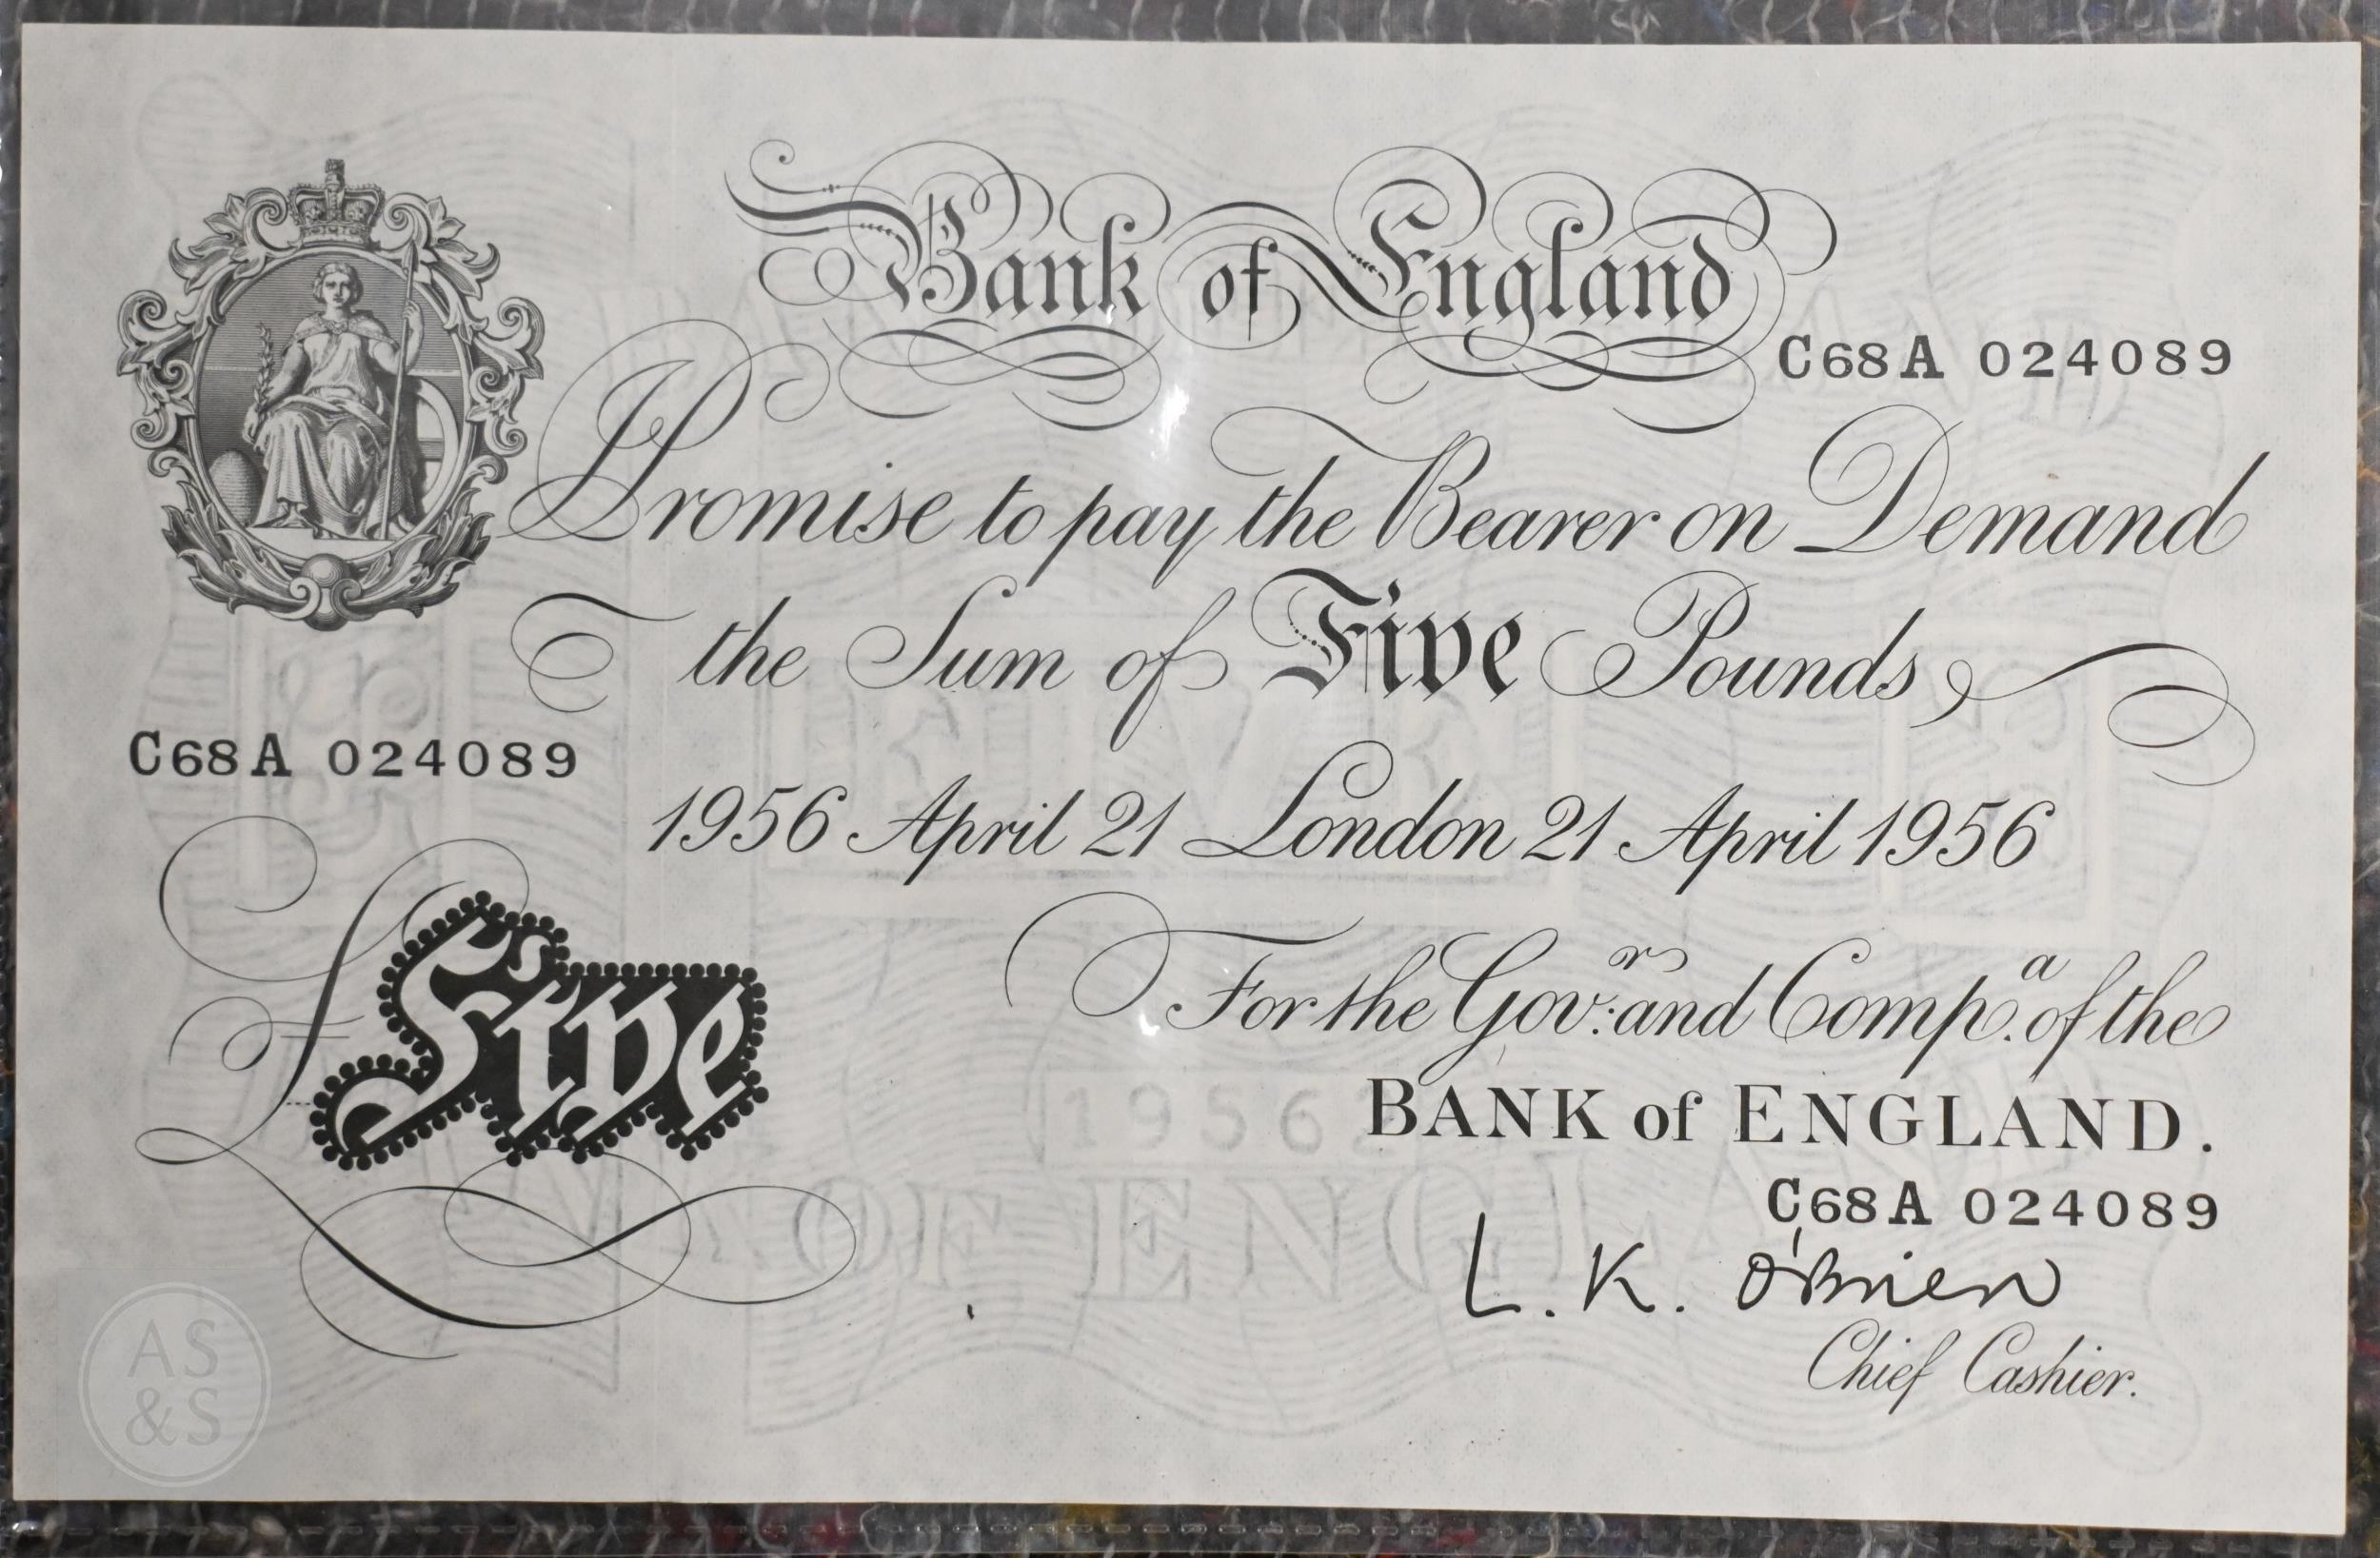 Bank of England
C68A 024089
I Promise to pay the Bearer on Demand
the Sum of Five Pounds
C68A 024089
1956 April 21 London 21 April 1956
For the Gov.r and Comp.a of the
£Five
BANK of ENGLAND.
1956
OF ENGLA
C68A 024089
L. K. O'Brien
Chief Cashier.
AS
&S